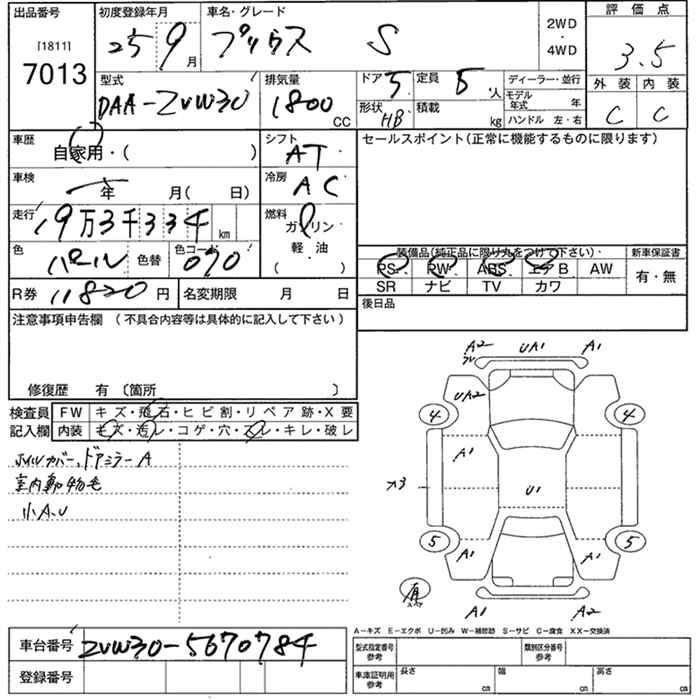 出品番号 初度登録年月 車名・グレード 評価点
[1811] 7013 25 9月 プリウス S 2WD・4WD 3.5
型式 排気量 ドア 5 定員 5人 ディーラー・並行 外装 内装
DAA-ZVW30 1800 CC 形状 HB 積載 kg モデル年式 年 ハンドル 左・右 C C
車歴 自家用・( ) シフト AT セールスポイント(正常に機能するものに限ります)
車検 年 月( 日) 冷房 AC
走行 19万3千334 km 燃料 ガソリン・軽・油 ( )
色 パール 色替 色コード 070 装備品(純正品に限り丸をつけて下さい)・ 新車保証書
PS PW ABS エアB AW 有・無
R券 11820円 名変期限 月 日 SR ナビ TV カワ
注意事項申告欄 (不具合内容等は具体的に記入して下さい) 後日品
修復歴 有〔箇所 〕
検査員 FW キズ・飛石・ヒビ割・リペア跡・X要
記入欄 内装 キズ・汚レ・コゲ・穴・スレ・キレ・破レ
ホイルカバー、ドアミラーA
室内動物毛
小A、U
A2 UA1 A1
UA2
4 4
A1
U1
5 5
A1 A1
有
A1 A2
A-キズ E-エクボ U-凹み W-補修跡 S-サビ C-腐食 XX-交換済
車台番号 ZVW30-5670784 型式指定番号 参考 類別区分番号 参考
登録番号 車庫証明用 参考 長さ cm 幅 cm 高さ cm